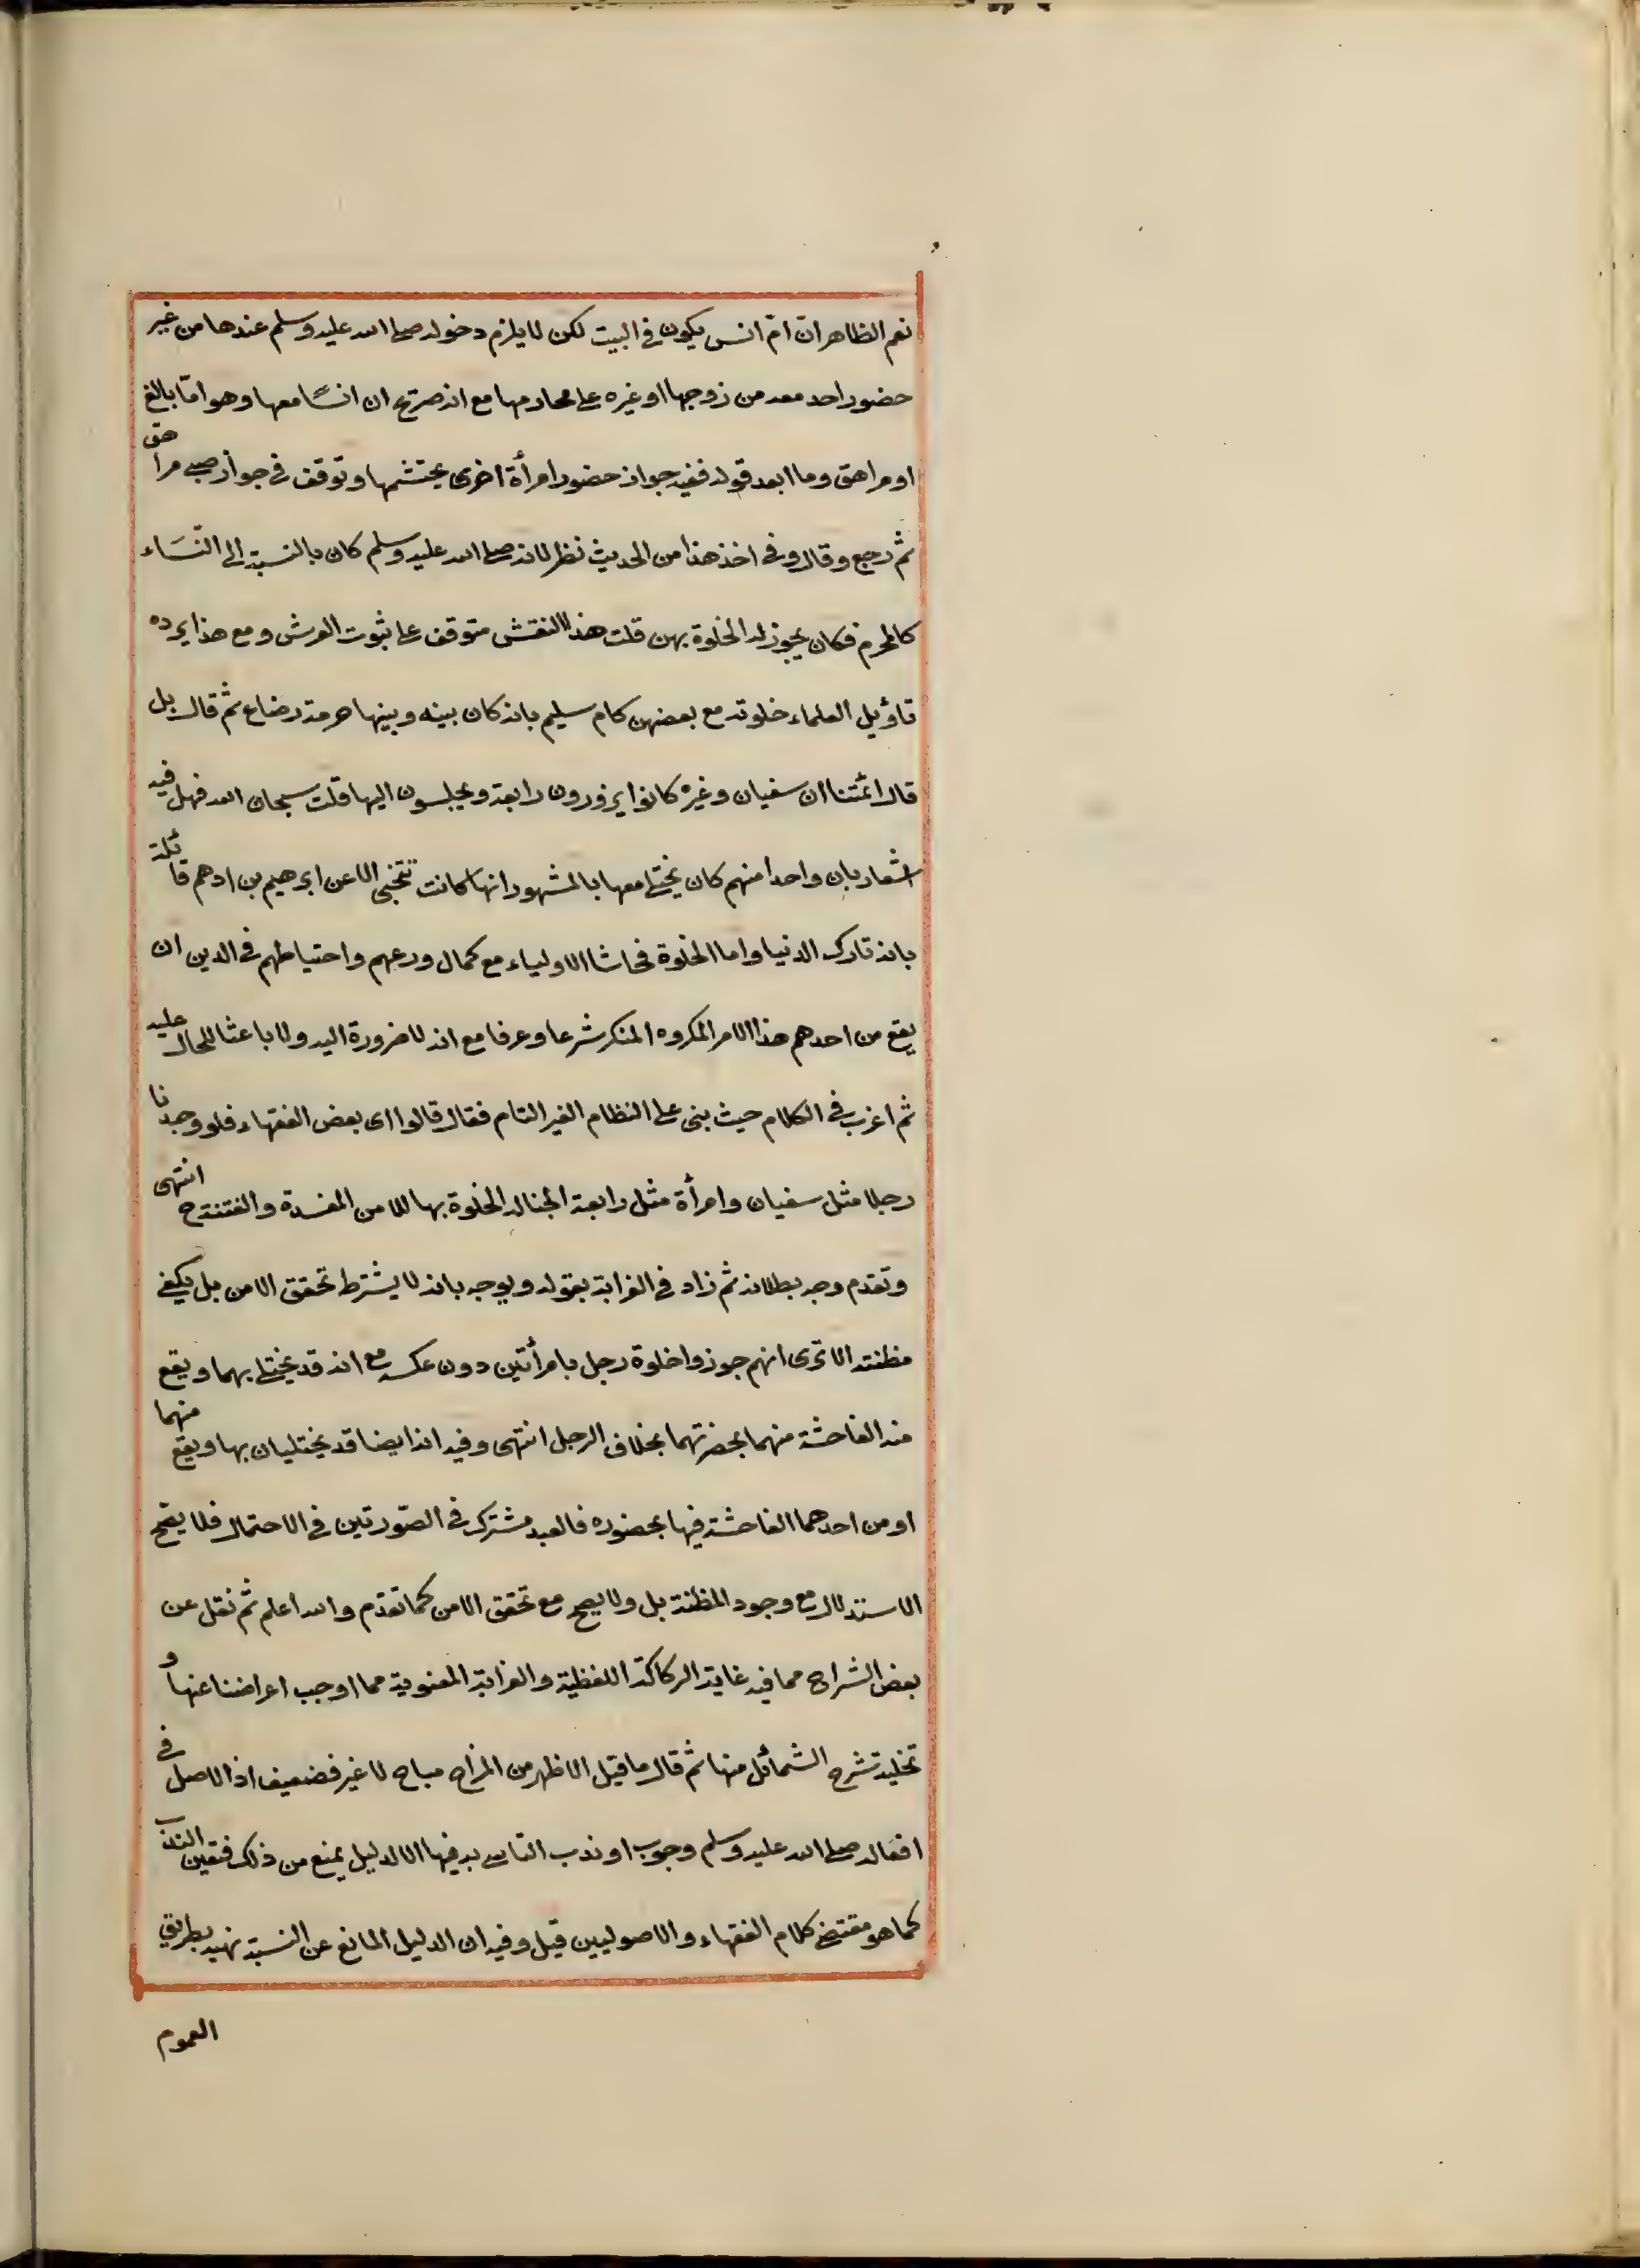 نعم الظاهر انّ امّ انس يكون في البيت لكن لا يلزم دخوله صلى الله عليه وسلم عندها من غير
حضور احد معه من زوجها او غيره على محارمها مع انه صرّح ان انسًا معها وهو امّا بالغ
او مراهق وما ابعد قوله ففيه جواز حضور امرأة اخرى يحتشمها وتوقف في جواز صبي مراهق
ثمّ رجع وقال وفي اخذ هذا من الحديث نظر لانه صلى الله عليه وسلم كان بالنسبة الى النّسَاء
كالمحرم فكان يجوز له الخلوة بهن قلت هذا النقش متوقف على ثبوت العرش ومع هذا يرده
تاؤيل العلماء خلوته مع بعضهن كام سليم بانه كان بينه وبينها حرمة رضاع ثم قال بل
قال ائمتنا ان سفيان وغيره كانوا يزورون رابعة ويجلسون اليها قلت سبحان الله فهل فيه
اشعار بان واحدا منهم كان يختلى معها بالمشهور انها كانت تتخبى الا عن ابرهيم بن ادهم قائلة
بانه تارك الدنيا واما الخلوة فحاشا الاولياء مع كمال ورعهم واحتياطهم في الدين ان
يقع من احدهم هذا الامر المكروه المنكر شرعا وعرفا مع انه لا ضرورة اليه ولا باعثا للحال عليه
ثم اغرب في الكلام حيث بنى على النظام الغير التام فقال قالوا اى بعض الفقهاء فلو وجدنا
رجلا مثل سفيان وامرأة مثل رابعة ابحنا له الخلوة بها للامن المفسدة والفتنة ح انتهى
وتقدم وجه بطلانه ثم زاد في الغرابة بقوله ويوجه بانه لا يشترط تحقق الامن بل يكفي
مظنته الا ترى انهم جوزوا خلوة رجل بامرأتين دون عكسه مع انه قد يختلى بهما ويقع
منه الفاحشة منهما بحضرتهما بخلاف الرجل انتهى وفيه انه ايضا قد يختليان بها ويقع منهما
او من احدهما الفاحشة فيها بحضوره فالعبد مشترك في الصّورتين في الاحتمال فلا يصح
الاستدلال مع وجود المظنة بل ولا يصح مع تحقق الامن كما تقدّم والله اعلم ثم نقل عن
بعض الشراح مما فيه غاية الركاكة اللفظية والغرابة المعنوية مما اوجب اعراضنا عنها و
تخلية شرح الشمائل منها ثم قال ما قيل الاظهر من المزاح مباح لا غير فضعيف اذ الاصل في
افعاله صلى الله عليه وسلم وجوب او ندب التاسي به فيها الا لدليل يمنع من ذلك فتعين الندب
كما هو مقتضى كلام الفقهاء والاصوليين قيل وفيه ان الدليل المانع عن النسبة نهيه بطريق
العموم